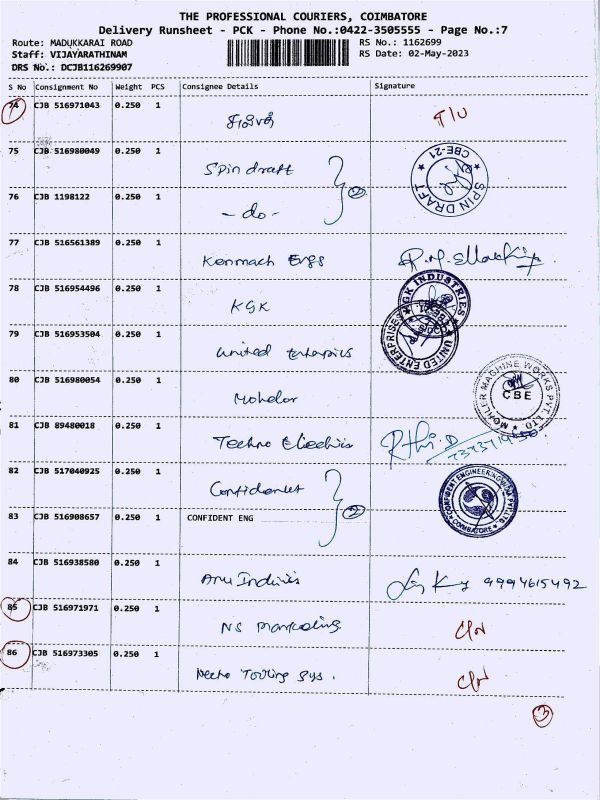 THE PROFESSIONAL COURIERS, COIMBATORE
Delivery Runsheet - PCK - Phone No.:0422-3505555 - Page No.:7
Route: MADUKKARAI ROAD RS No.: 1162699
Staff: VIJAYARATHINAM RS Date: 02-May-2023
DRS No.: DCJB116269907
S No Consignment No Weight PCS Consignee Details Signature
74 CJB 516971043 0.250 1
75 CJB 516980049 0.250 1
Spin draft
CBE-21 SPIN DRAFT
76 CJB 1198122 0.250 1
- do -
2
77 CJB 516561389 0.250 1
Kenmach Engs
78 CJB 516954496 0.250 1
KGK
GK INDUSTRIES
79 CJB 516953504 0.250 1
United Enterprises
UNITED ENTERPRISES
80 CJB 516980054 0.250 1
Mohelor
MOHLER MACHINE WORKS PVT. LTD CBE
81 CJB 89480018 0.250 1
Techno
82 CJB 517040925 0.250 1
CONFIDENT ENGINEERING INDIA PVT LTD COIMBATORE
83 CJB 516908657 0.250 1 CONFIDENT ENG
2
84 CJB 516938580 0.250 1
9994615492
85 CJB 516971971 0.250 1
NS Marketing
86 CJB 516973305 0.250 1
Tooling Sys.
3